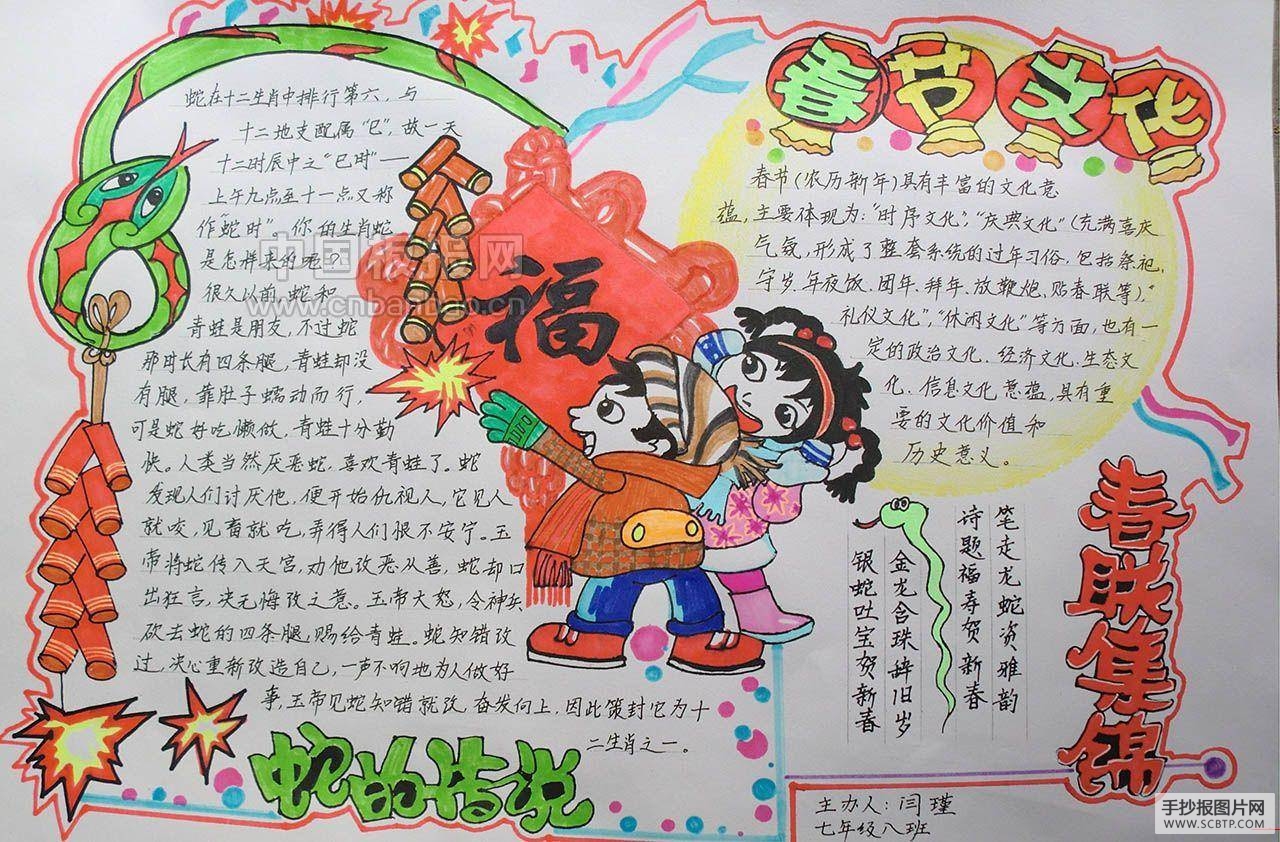 蛇在十二生肖中排行第六，与
十二地支配属“巳”，故一天
十二时辰中之“巳时”——
上午九点至十一点又称
作“蛇时”。你的生肖蛇
是怎样来的呢？
很久以前，蛇和
青蛙是朋友，不过蛇
那时长有四条腿，青蛙却没
有腿，靠肚子蠕动而行，
可是蛇好吃懒做，青蛙十分勤
快。人类当然厌恶蛇，喜欢青蛙了。蛇
发现人们讨厌他，便开始仇视人，它见人
就咬，见畜就吃，弄得人们恨不安宁。玉
帝将蛇传入天宫，劝他改恶从善，蛇却口
出狂言，决无悔改之意。玉帝大怒，令神兵
砍去蛇的四条腿，赐给青蛙。蛇知错改
过，决心重新改造自己，一声不响地为人做好
事，玉帝见蛇知错就改，奋发向上，因此策封它为十
二生肖之一。
蛇的传说
福
中国板报网
www.cnbanbao.cn
春节文化
春节（农历新年）具有丰富的文化意
蕴，主要体现为：“时序文化”，“庆典文化”（充满喜庆
气氛，形成了整套系统的过年习俗，包括祭祀、
守岁、年夜饭、团年、拜年、放鞭炮、贴春联等），“
礼仪文化”，“休闲文化”等方面，也有一
定的政治文化、经济文化、生态文
化、信息文化意蕴，具有重
要的文化价值和
历史意义。
春联集锦
笔走龙蛇资雅韵
诗题福寿贺新春
金龙含珠辞旧岁
银蛇吐宝贺新春
主办人：闫瑾
七年级八班
手抄报图片网
WWW.SCBTP.COM